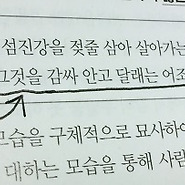 섬진강을 젖줄 삼아 살아가는
그것을 감싸 안고 달래는 어조
모습을 구체적으로 묘사하여
대하는 모습을 통해 사람